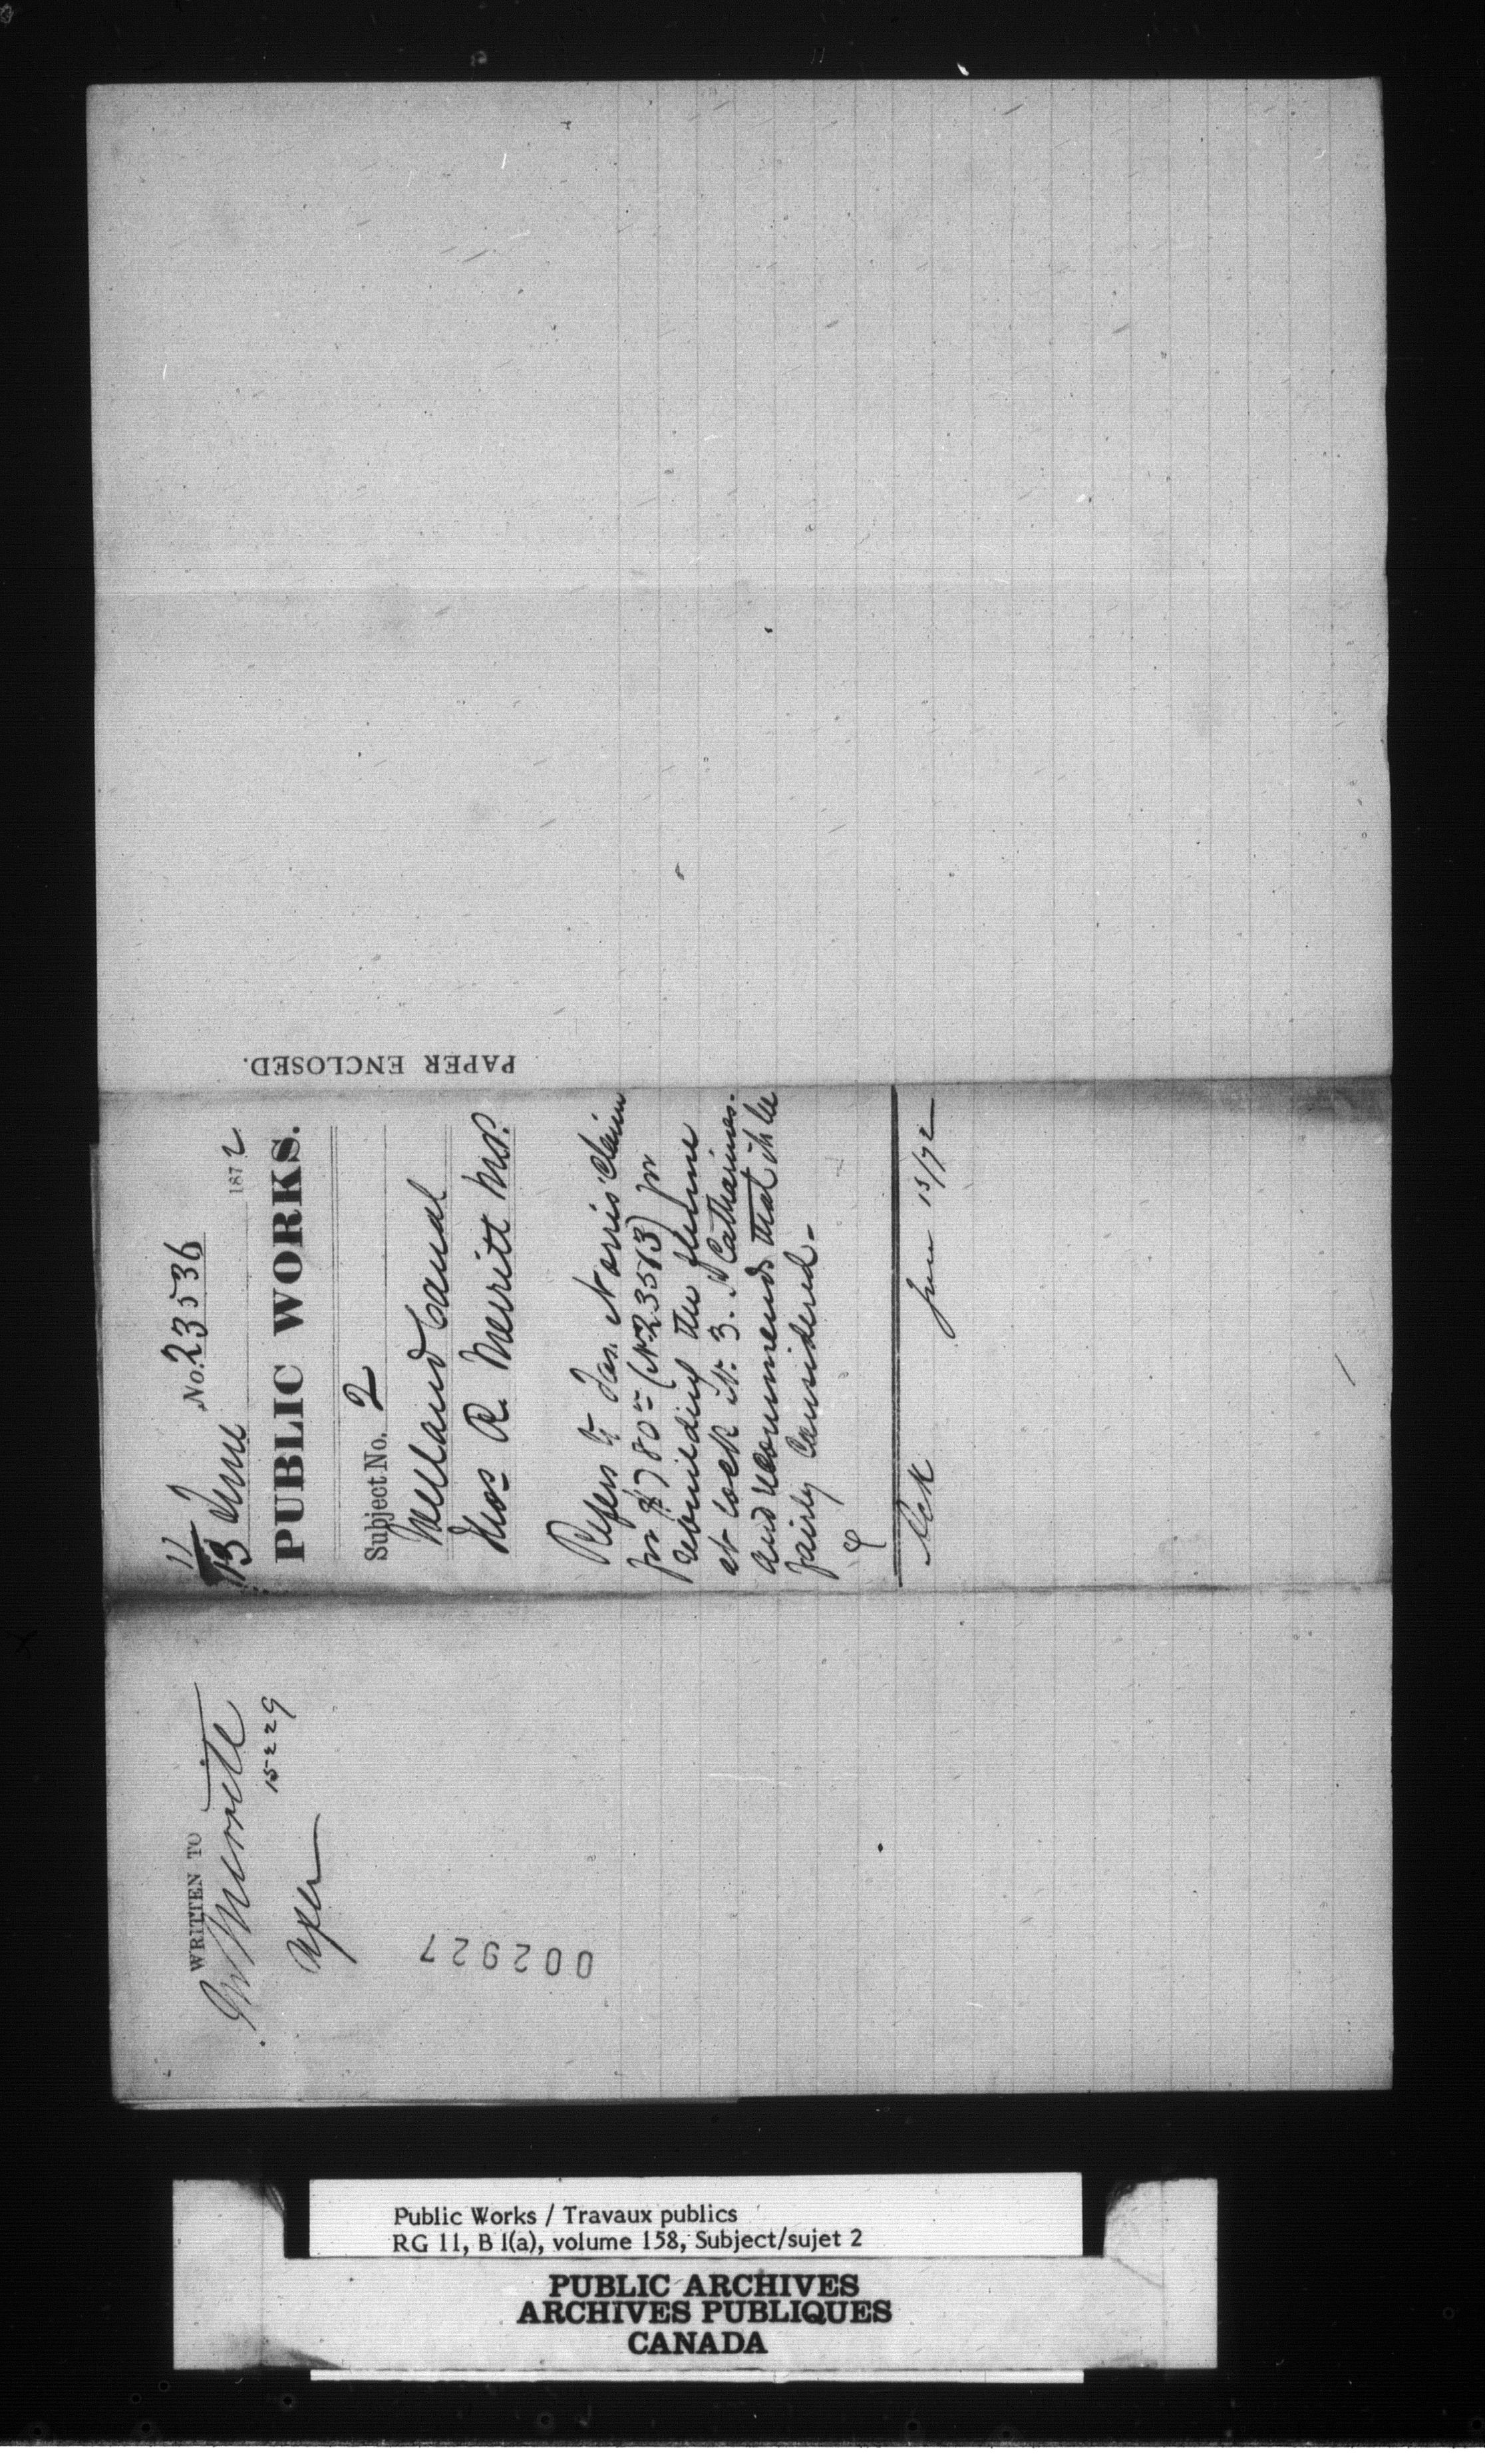 WRITTEN TO
Mr Merritt
15229
002927
11
13 June No. 23536
1872
PUBLIC WORKS.
Subject No. 2
Welland Canal
Thos R. Merritt M.P.
Refers to Jas. Norris' Claim
for $780 00 (No 23513) for
rebuilding the flume
at lock No. 3. St Catharines.
and recommends that it be
fairly Considered.
Ack June 15/72
PAPER ENCLOSED.
Public Works / Travaux publics
RG 11, B 1(a), volume 158, Subject/sujet 2
PUBLIC ARCHIVES
ARCHIVES PUBLIQUES
CANADA